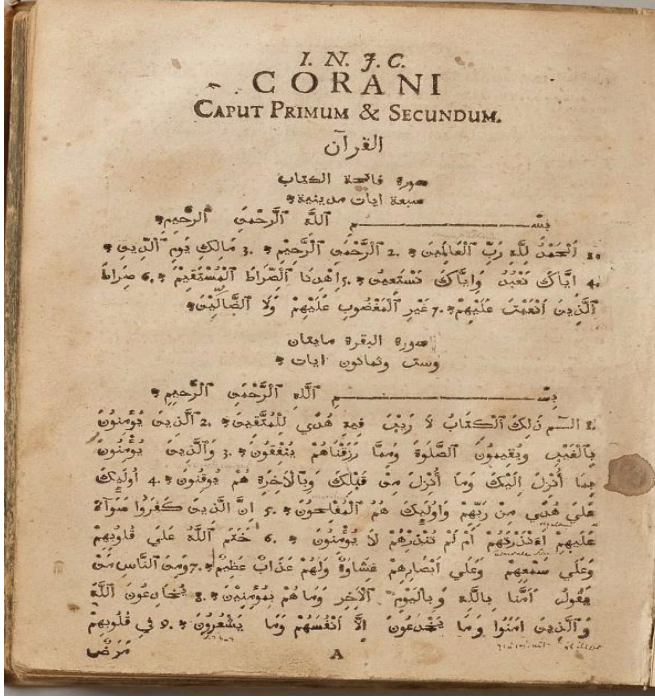 I. N. J. C.
CORANI
CAPUT PRIMUM & SECUNDUM.
القرآن
سورة فاتحة الكتاب
سبعة ايات مدينية
بِسْــــــــــــمِ ٱللَّهِ ٱلرَّحْمَٰنِ ٱلرَّحِيمِ
1. اَلْحَمْدُ لِلَّهِ رَبِّ ٱلْعَالَمِينَ 2. ٱلرَّحْمَٰنِ ٱلرَّحِيمِ 3. مَالِكِ يَوْمِ ٱلدِّينِ
4. اِيَّاكَ نَعْبُدُ وَاِيَّاكَ نَسْتَعِينُ 5. اِهْدِنَا ٱلصِّرَاطَ ٱلْمُسْتَقِيمَ 6. صِرَاطَ
ٱلَّذِينَ اَنْعَمْتَ عَلَيْهِمْ 7. غَيْرِ ٱلْمَغْضُوبِ عَلَيْهِمْ وَلَا ٱلضَّالِّينَ
سورة البقرة مايتان
وست وثمانون ايات
بِسْــــــــــــمِ ٱللَّهِ ٱلرَّحْمَٰنِ ٱلرَّحِيمِ
1. الٓــمٓ ذَلِكَ ٱلْكِتَابُ لَا رَيْبَ فِيهِ هُدًي لِلْمُتَّقِينَ 2. ٱلَّذِينَ يُؤْمِنُونَ
بِٱلْغَيْبِ وَيُقِيمُونَ ٱلصَّلَوةَ وَمِمَّا رَزَقْنَاهُمْ يُنْفِقُونَ 3. وَٱلَّذِينَ يُؤْمِنُونَ
بِمَا أُنْزِلَ اِلَيْكَ وَمَا أُنْزِلَ مِنْ قَبْلِكَ وَبِٱلْاَخِرَةِ هُمْ يُوقِنُونَ 4. أُولَٰئِكَ
عَلَي هُدًي مِنْ رَبِّهِمْ وَاُولَٰئِكَ هُمُ ٱلْمُفْلِحُونَ 5. اِنَّ ٱلَّذِينَ كَفَرُوا سَوَآءٌ
عَلَيهِمْ اَءَنْذَرْتَهُمْ أَمْ لَمْ تُنْذِرْهُمْ لَا يُؤْمِنُونَ 6. خَتَمَ ٱللَّهُ عَلَي قُلُوبِهِمْ
وَعَلَي سَمْعِهِمْ وَعَلَي أَبْصَارِهِمْ غِشَاوَةٌ وَلَهُمْ عَذَابٌ عَظِيمٌ 7. وَمِنَ ٱلنَّاسِ مَنْ
يَقُولُ اَمَنَّا بِٱللَّهِ وَبِالْيَوْمِ ٱلْاَخِرِ وَمَا هُمْ بِمُؤْمِنِينَ 8. يُخَادِعُونَ ٱللَّهَ
وَٱلَّذِينَ اَمَنُوا وَمَا يَخْدَعُونَ اِلَّا أَنْفُسَهُمْ وَمَا يَشْعُرُونَ 9. فِي قُلُوبِهِمْ
A مَرَضٌ